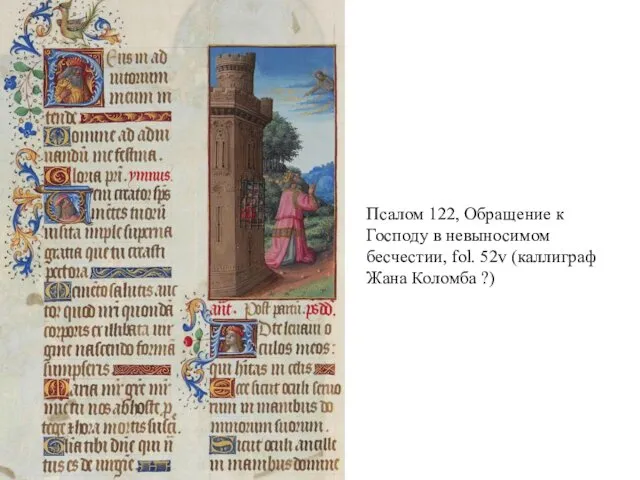 Deus in ad
iutorium
meum in
tende
Domine ad adiu
uandū me festina.
Gloria pri. ymnus.
Veni creator sps
mētes tuorū
uisita imple superna
gratia que tu creasti
pectora
Memēto salutis auc
tor quod nri quondā
corporis ex illibata uir
gine nascendo formā
sumpseris
Maria mr grē mr
mie tu nos ab hoste p
tege & hora mortis suscī.
Glia tibi dne qui n
tus es de uirgīe
ant. Post partū. ps dd.
Ad te leuaui o
culos meos:
qui hītas in celis
Ecce sicut oculi seruo
rum in manibus do
minorum suorum.
Sicut oculi ancille
in manibus domine
Псалом 122, Обращение к
Господу в невыносимом
бесчестии, fol. 52v (каллиграф
Жана Коломба ?)